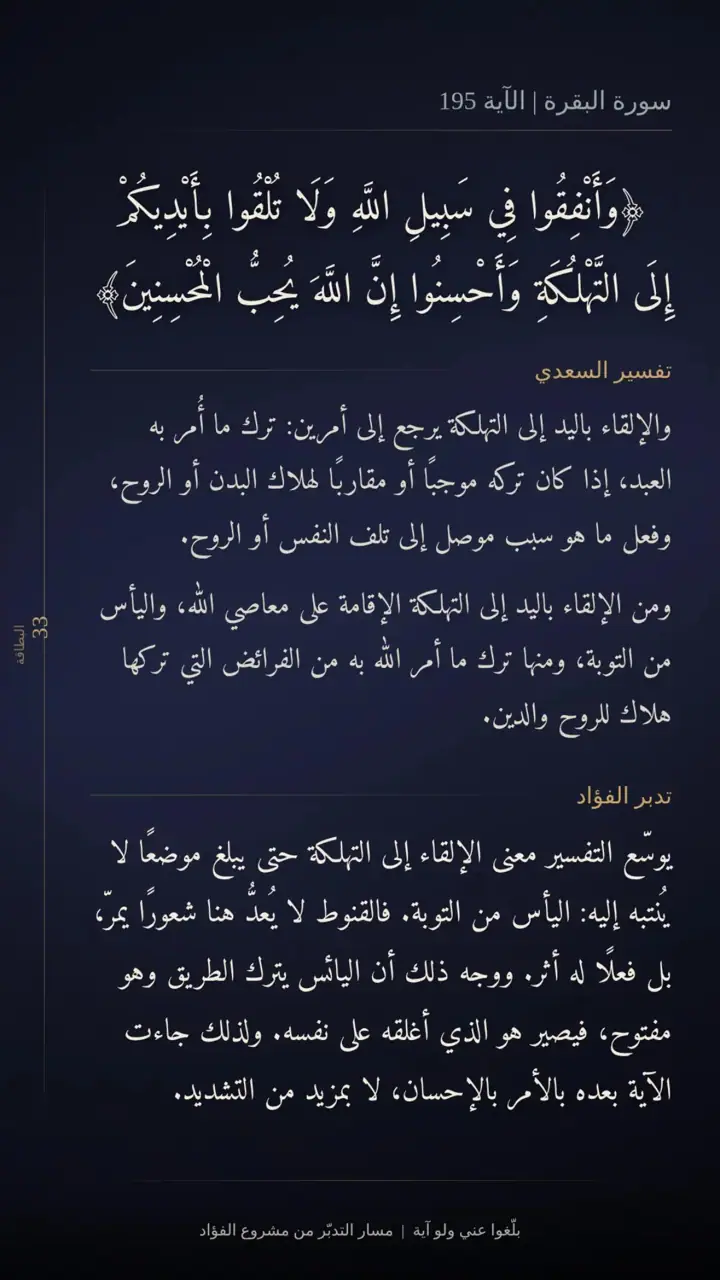 سورة البقرة | الآية 195
﴿وَأَنْفِقُوا فِي سَبِيلِ اللَّهِ وَلَا تُلْقُوا بِأَيْدِيكُمْ
إِلَى التَّهْلُكَةِ وَأَحْسِنُوا إِنَّ اللَّهَ يُحِبُّ الْمُحْسِنِينَ﴾
تفسير السعدي
والإلقاء باليد إلى التهلكة يرجع إلى أمرين: ترك ما أُمر به
العبد، إذا كان تركه موجبًا أو مقاربًا لهلاك البدن أو الروح،
وفعل ما هو سبب موصل إلى تلف النفس أو الروح.
ومن الإلقاء باليد إلى التهلكة الإقامة على معاصي الله، واليأس
من التوبة، ومنها ترك ما أمر الله به من الفرائض التي تركها
هلاك للروح والدين.
البطاقة
33
تدبر الفؤاد
يوسّع التفسير معنى الإلقاء إلى التهلكة حتى يبلغ موضعًا لا
يُنتبه إليه: اليأس من التوبة. فالقنوط لا يُعدُّ هنا شعورًا يمرّ،
بل فعلًا له أثر. ووجه ذلك أن اليائس يترك الطريق وهو
مفتوح، فيصير هو الذي أغلقه على نفسه. ولذلك جاءت
الآية بعده بالأمر بالإحسان، لا بمزيد من التشديد.
بلّغوا عني ولو آية | مسار التدبّر من مشروع الفؤاد